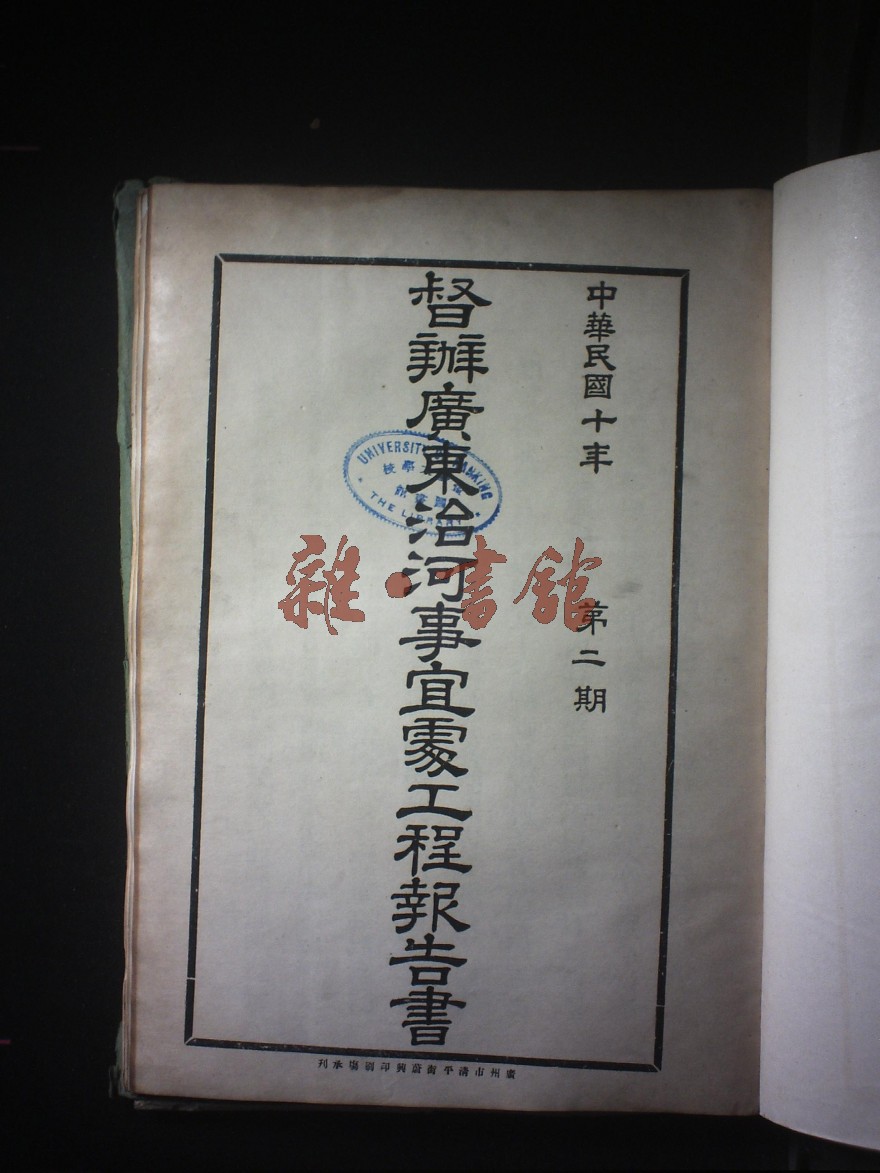 中華民國十年　第二期
督辦廣東治河事宜處工程報告書
UNIVERSITY NANKING
學校
THE LIBRARY
雜·書館
廣州市清平街蔚興印刷塲承刊